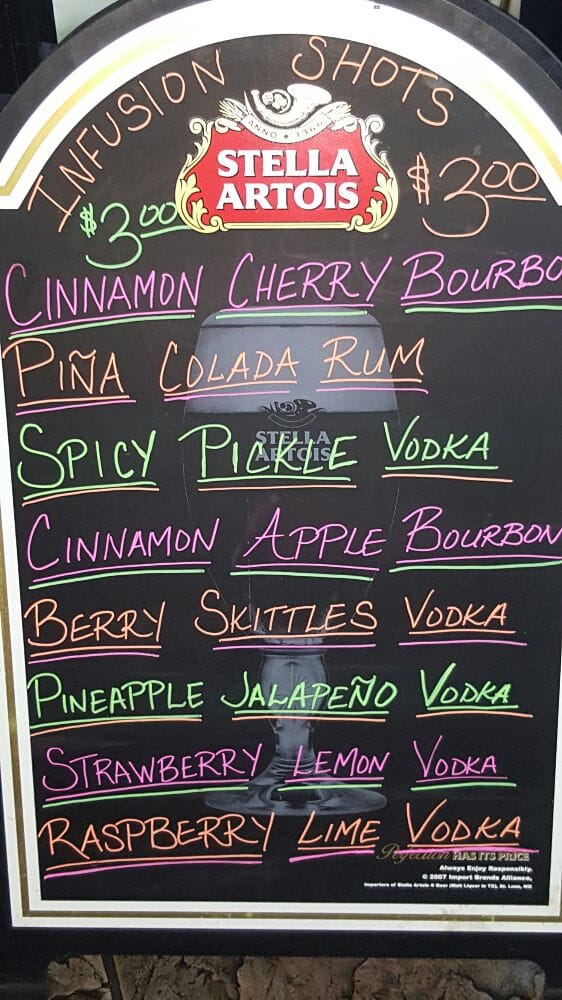 INFUSION SHOTS
ANNO 1366
STELLA
ARTOIS
$3.00
$3.00
CINNAMON CHERRY BOURBO
PIÑA COLADA RUM
SPICY PICKLE VODKA
STELLA
ARTOIS
CINNAMON APPLE BOURBON
BERRY SKITTLES VODKA
PINEAPPLE JALAPEÑO VODKA
STRAWBERRY LEMON VODKA
RASPBERRY LIME VODKA
Perfection HAS ITS PRICE
Always Enjoy Responsibly.
© 2007 Import Brands Alliance,
Importers of Stella Artois ® Beer (Malt Liquor in TX), St. Louis, MO